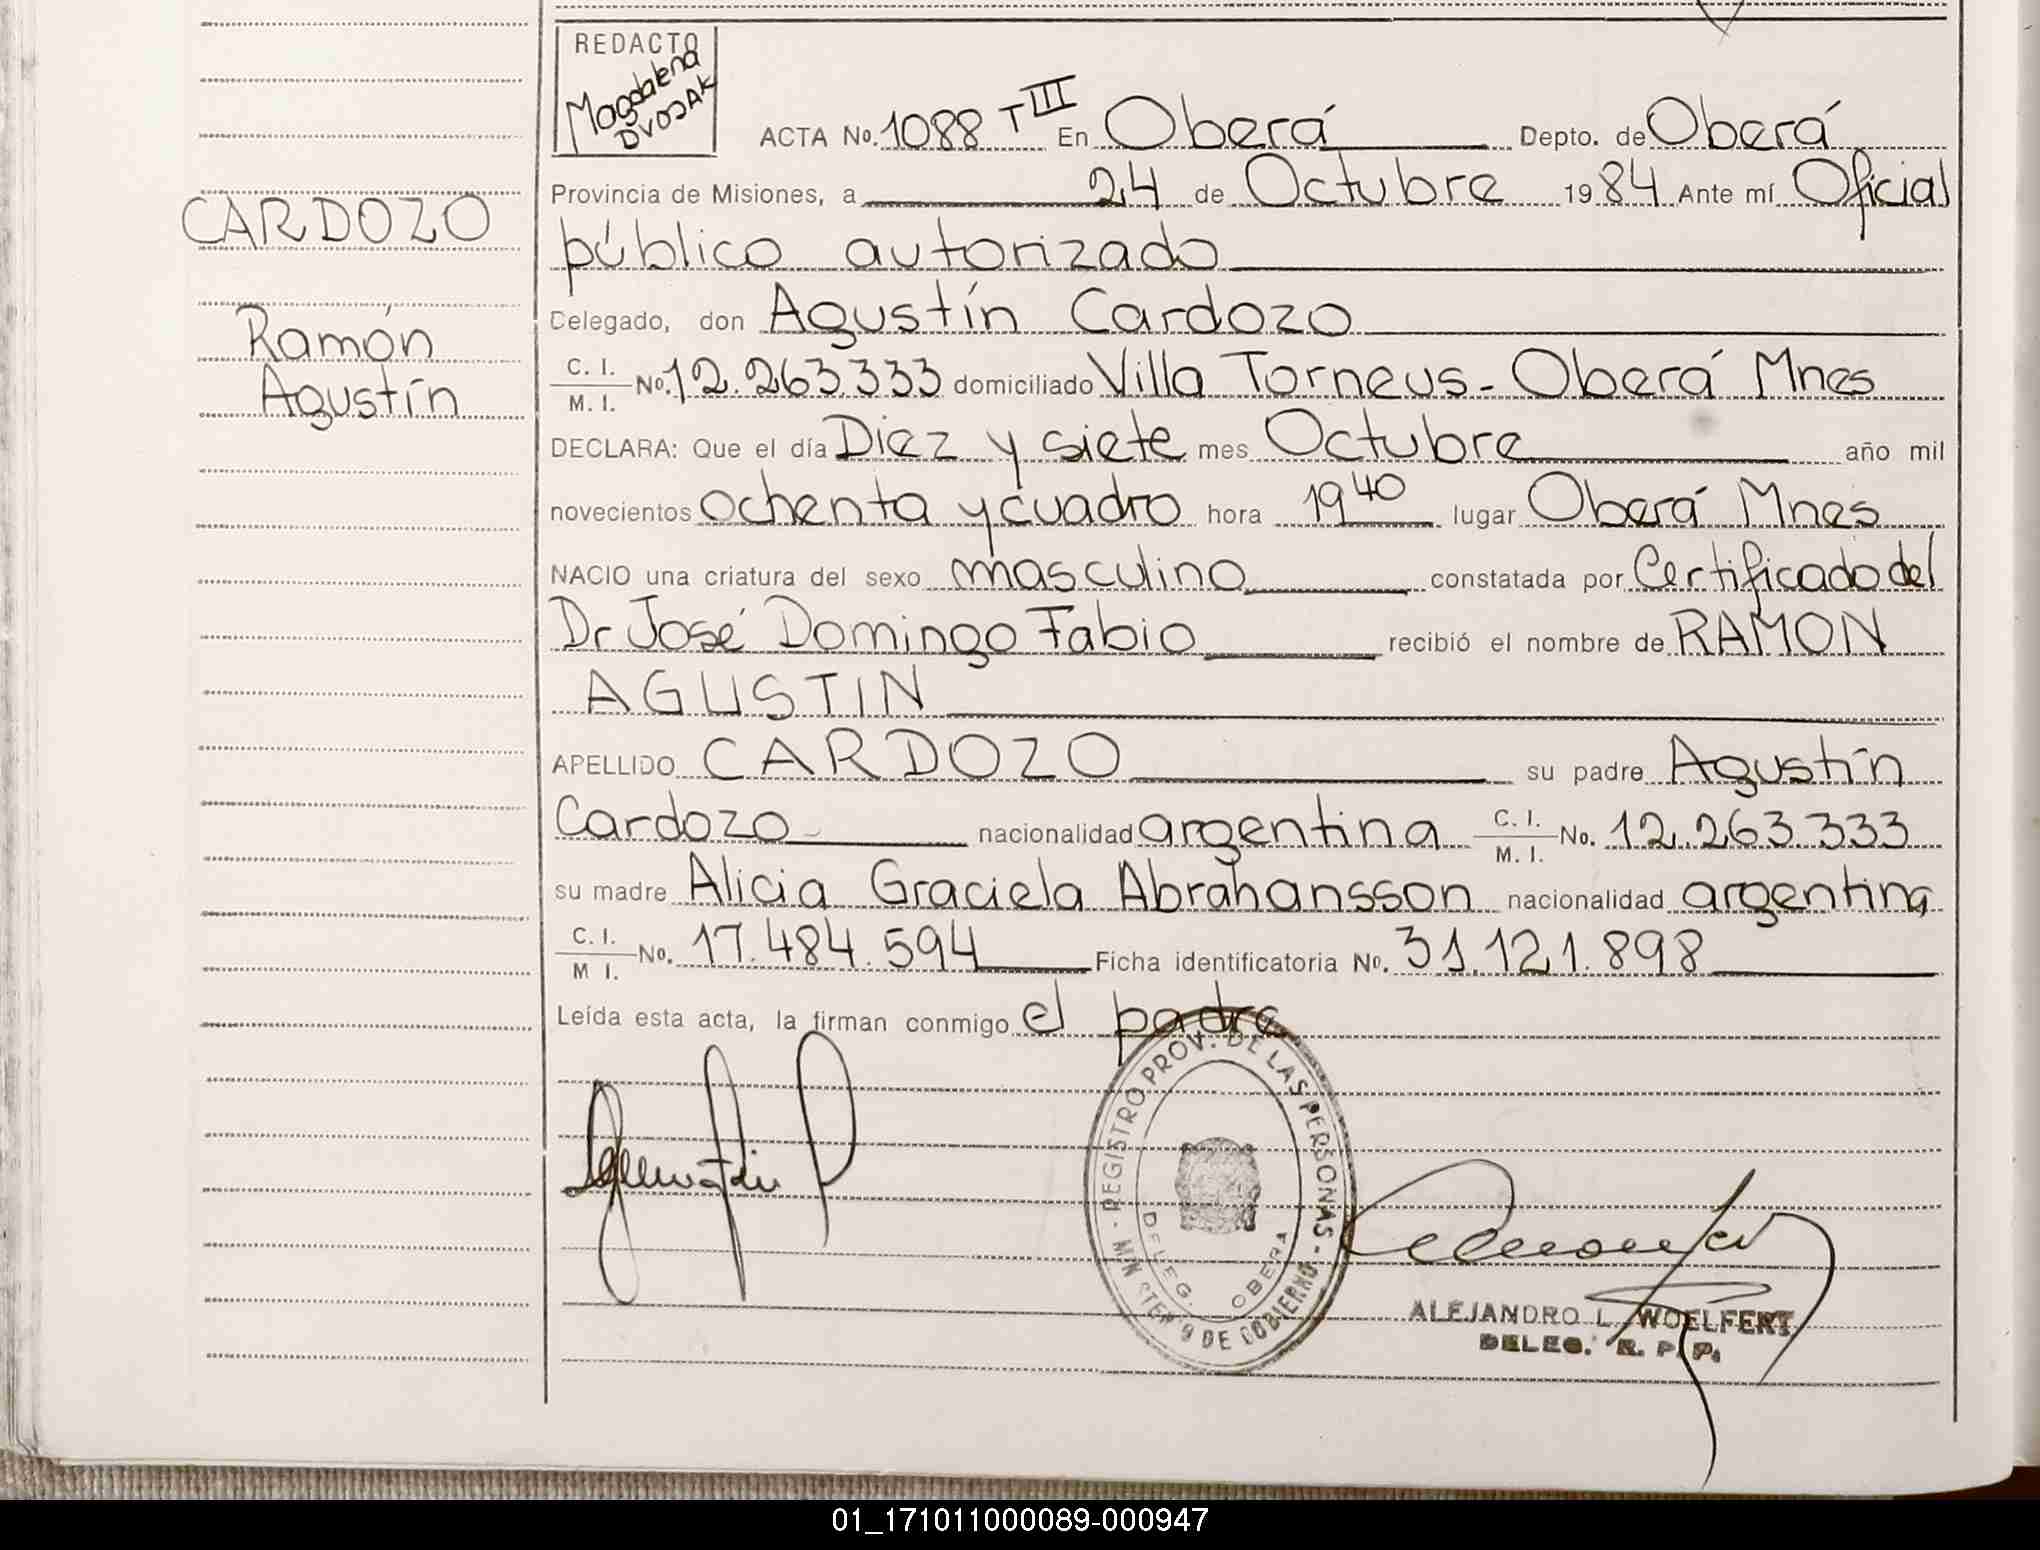 REDACTO
Magdalena
DVOJAK
ACTA No. 1088 T III En Oberá Depto. de Oberá
Provincia de Misiones, a 24 de Octubre 1984 Ante mí Oficial
público autorizado
CARDOZO
Delegado, don Agustín Cardozo
Ramón
Agustín
C. I.
M. I. No. 12.263.333 domiciliado Villa Torneus - Oberá Mnes
DECLARA: Que el día Diez y siete mes Octubre año mil
novecientos ochenta y cuadro hora 19 40 lugar Oberá Mnes
NACIO una criatura del sexo masculino constatada por Certificado del
Dr José Domingo Fabio recibió el nombre de RAMON
AGUSTIN
APELLIDO CARDOZO su padre Agustín
Cardozo nacionalidad argentina C. I. M. I. No. 12.263.333
su madre Alicia Graciela Abrahansson nacionalidad argentina
C. I. M I. No. 17.484.594 Ficha identificatoria No. 31.121.898
Leída esta acta, la firman conmigo el padre
REGISTRO PROV. DE LAS PERSONAS - MINISTERIO DE GOBIERNO -
DELEG. OBERA
ALEJANDRO L. WOELFERT
DELEG. R. P. P.
01_171011000089-000947